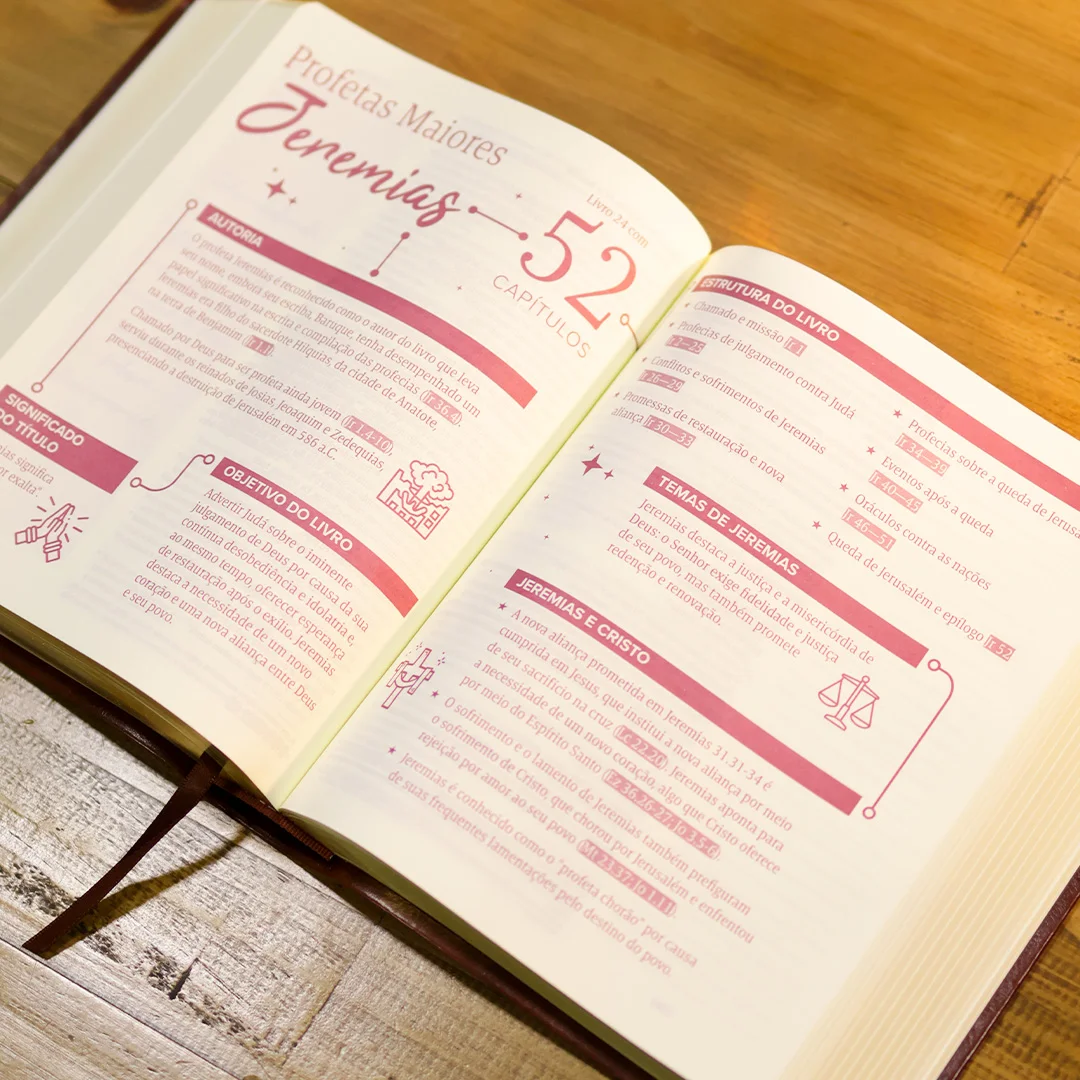 Profetas Maiores
Jeremias
Livro 24 com
52
CAPÍTULOS
AUTORIA
O profeta Jeremias é reconhecido como o autor do livro que leva
seu nome, embora seu escriba, Baruque, tenha desempenhado um
papel significativo na escrita e compilação das profecias (Jr 36.4).
Jeremias era filho do sacerdote Hilquias, da cidade de Anatote,
na terra de Benjamim (Jr 1.1).
Chamado por Deus para ser profeta ainda jovem (Jr 1.4-10),
serviu durante os reinados de Josias, Jeoaquim e Zedequias,
presenciando a destruição de Jerusalém em 586 a.C.
SIGNIFICADO
DO TÍTULO
significa
exalta."
OBJETIVO DO LIVRO
Advertir Judá sobre o iminente
julgamento de Deus por causa da sua
contínua desobediência e idolatria e,
ao mesmo tempo, oferecer esperança
de restauração após o exílio. Jeremias
destaca a necessidade de um novo
coração e uma nova aliança entre Deus
e seu povo.
ESTRUTURA DO LIVRO
Chamado e missão Jr 1
Profecias de julgamento contra Judá
Jr 2—25
Conflitos e sofrimentos de Jeremias
Jr 26—29
Promessas de restauração e nova
aliança Jr 30—33
Profecias sobre a queda de Jerusa
Jr 34—39
Eventos após a queda
Jr 40—45
Oráculos contra as nações
Jr 46—51
Queda de Jerusalém e epílogo Jr 52
TEMAS DE JEREMIAS
Jeremias destaca a justiça e a misericórdia de
Deus: o Senhor exige fidelidade e justiça
de seu povo, mas também promete
redenção e renovação.
JEREMIAS E CRISTO
A nova aliança prometida em Jeremias 31.31-34 é
cumprida em Jesus, que institui a nova aliança por meio
de seu sacrifício na cruz (Lc 22.20). Jeremias aponta para
a necessidade de um novo coração, algo que Cristo oferece
por meio do Espírito Santo (Ez 36.26-27; Jo 3.5-6).
O sofrimento e o lamento de Jeremias também prefiguram
o sofrimento de Cristo, que chorou por Jerusalém e enfrentou
rejeição por amor ao seu povo (Mt 23.37; Jo 1.11).
Jeremias é conhecido como o "profeta chorão" por causa
de suas frequentes lamentações pelo destino do povo.